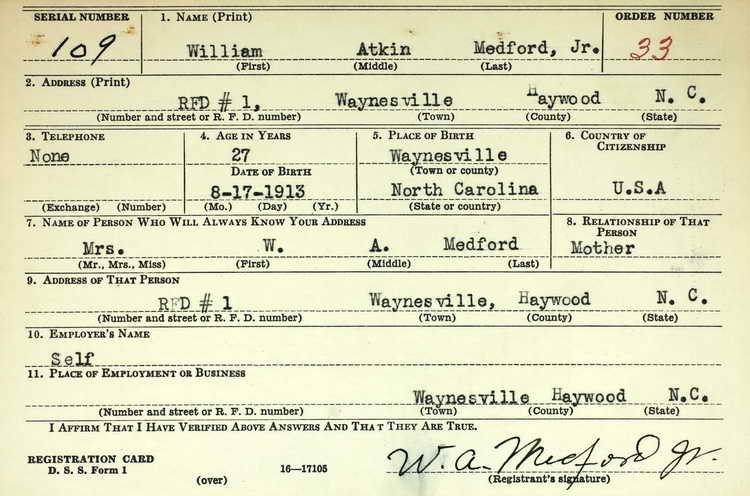 SERIAL NUMBER 1. NAME (Print) ORDER NUMBER
109 William Atkin Medford, Jr. 33
(First) (Middle) (Last)
2. ADDRESS (Print)
RFD # 1, Waynesville Haywood N. C.
(Number and street or R. F. D. number) (Town) (County) (State)
3. TELEPHONE 4. AGE IN YEARS 5. PLACE OF BIRTH 6. COUNTRY OF CITIZENSHIP
None 27 Waynesville
DATE OF BIRTH (Town or county)
8-17-1913 North Carolina U.S.A
(Exchange) (Number) (Mo.) (Day) (Yr.) (State or country)
7. NAME OF PERSON WHO WILL ALWAYS KNOW YOUR ADDRESS 8. RELATIONSHIP OF THAT PERSON
Mrs. W. A. Medford Mother
(Mr., Mrs., Miss) (First) (Middle) (Last)
9. ADDRESS OF THAT PERSON
RFD # 1 Waynesville, Haywood N. C.
(Number and street or R. F. D. number) (Town) (County) (State)
10. EMPLOYER'S NAME
Self
11. PLACE OF EMPLOYMENT OR BUSINESS
Waynesville Haywood N.C.
(Number and street or R. F. D. number) (Town) (County) (State)
I AFFIRM THAT I HAVE VERIFIED ABOVE ANSWERS AND THAT THEY ARE TRUE.
REGISTRATION CARD
D. S. S. Form 1 16—17105 W. A. Medford Jr.
(over) (Registrant's signature)